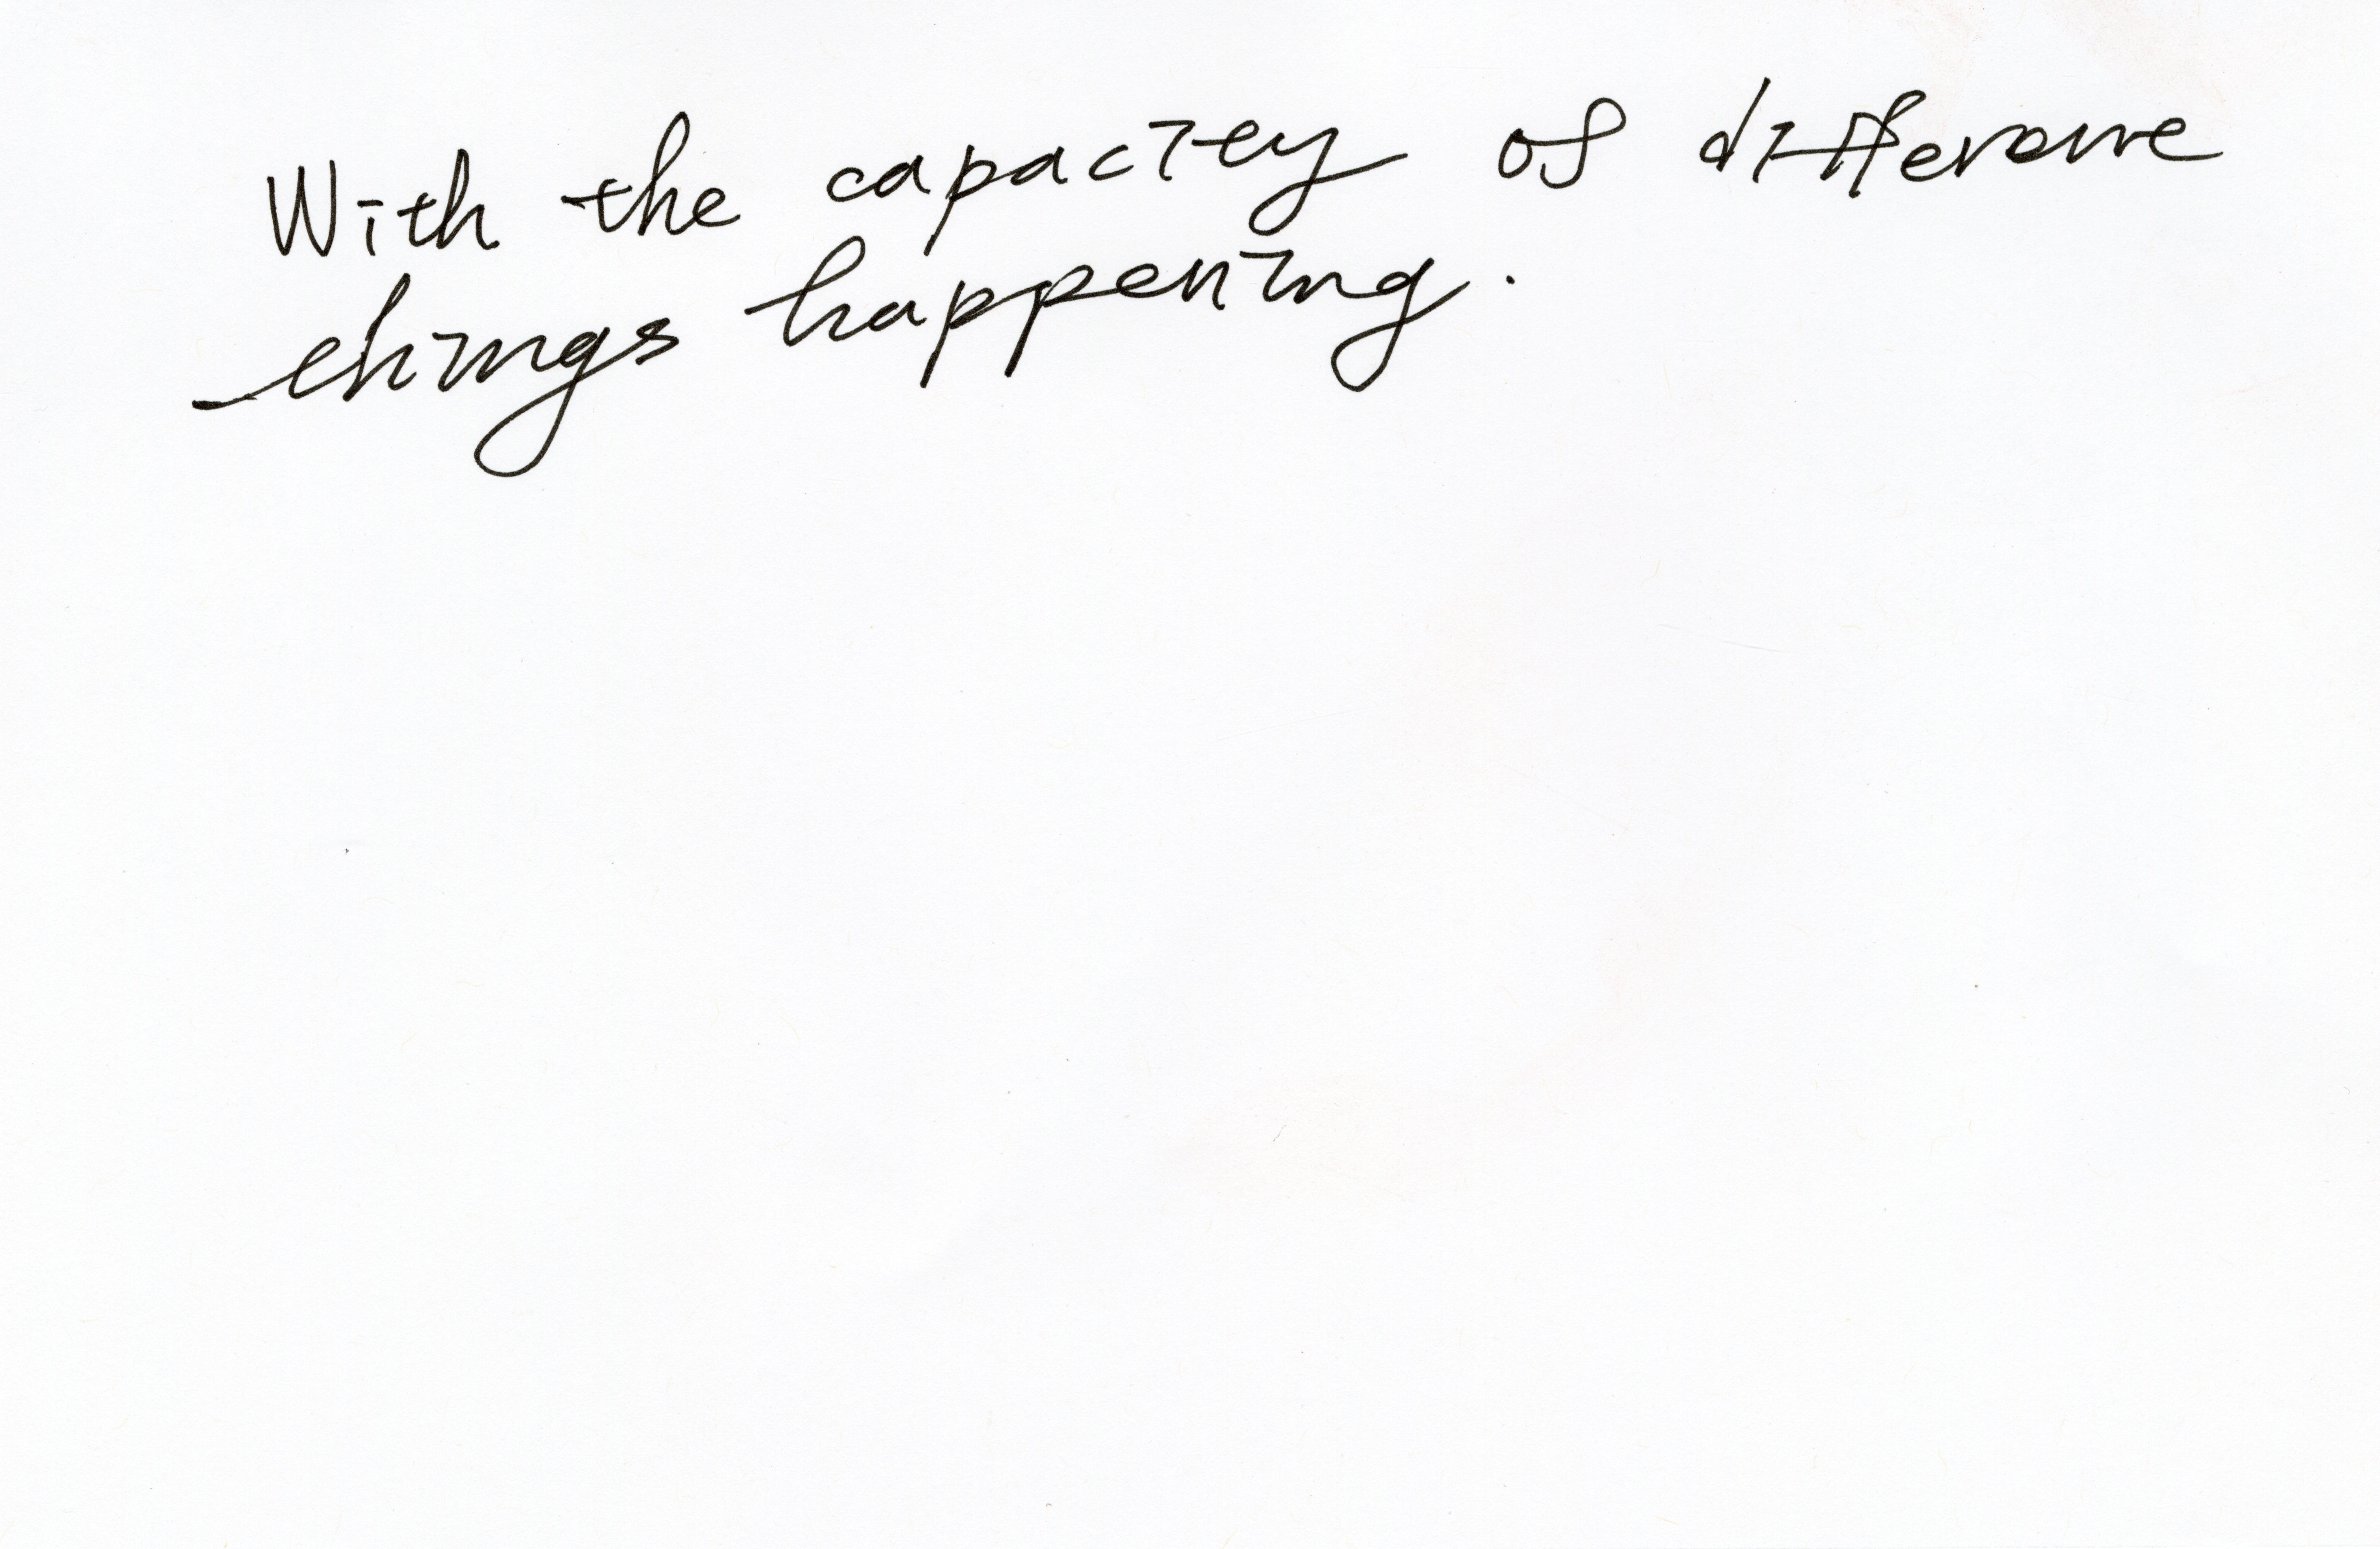 With the capacity of different
things happening.